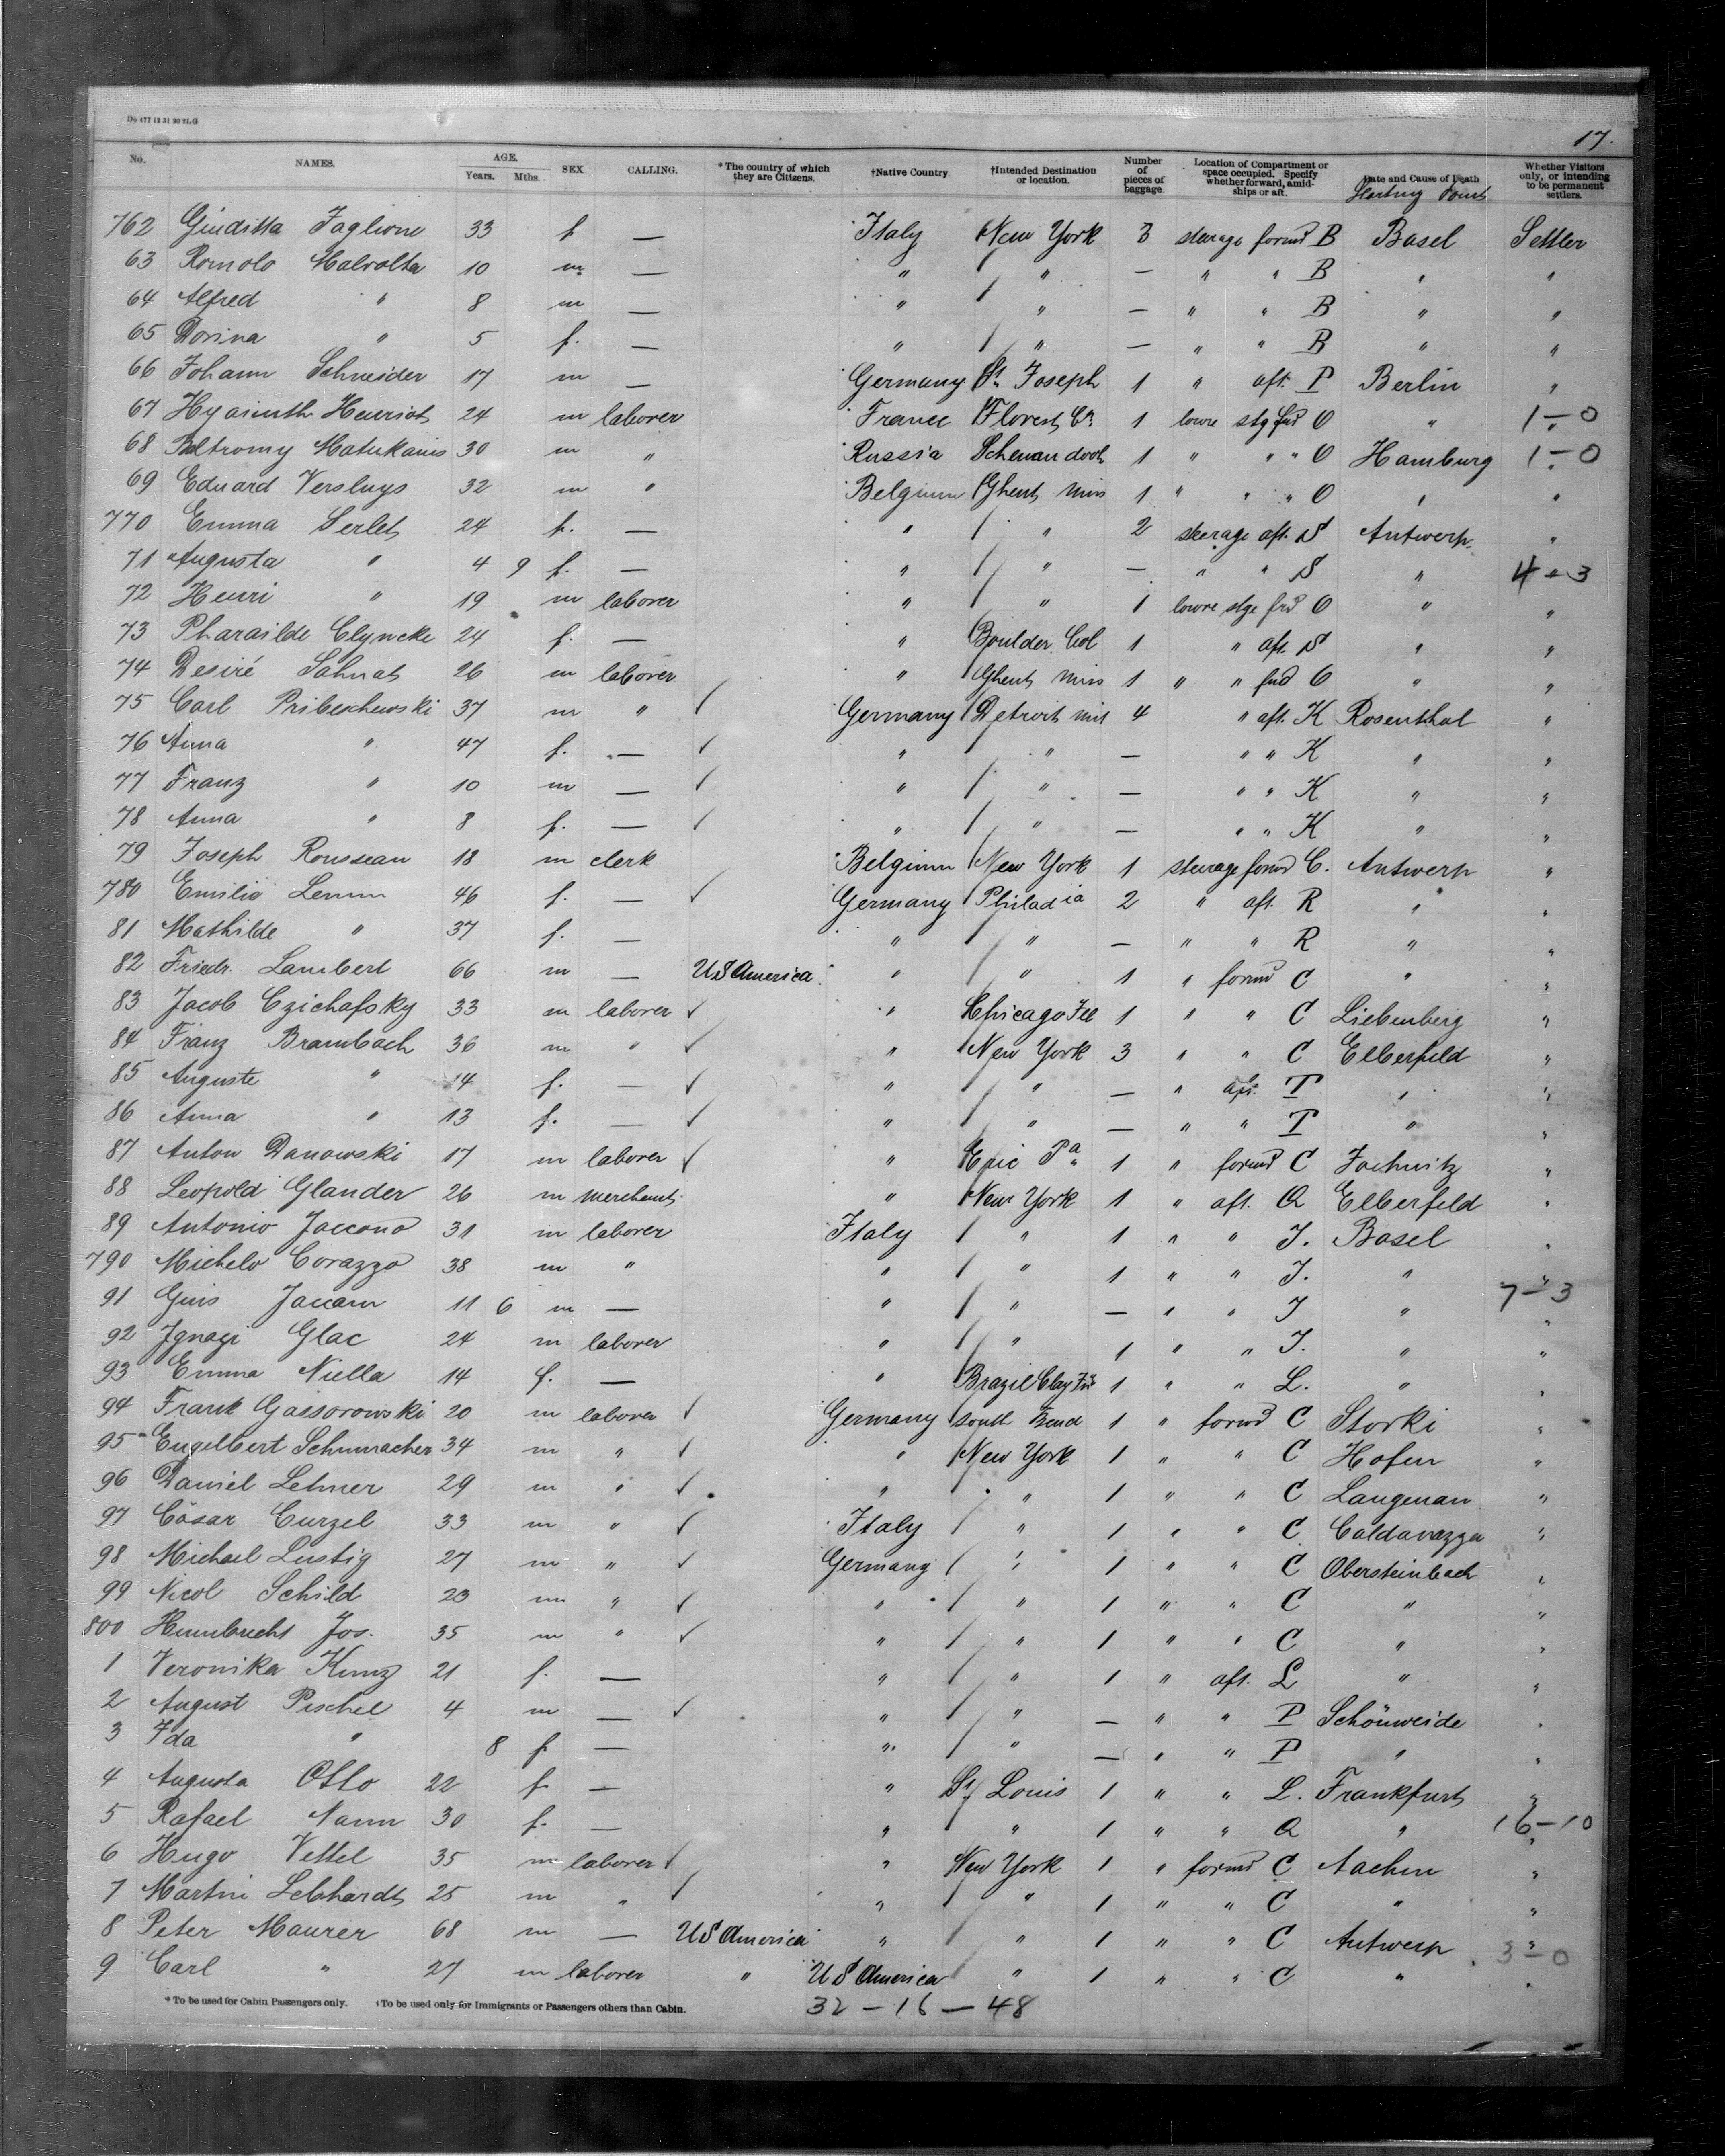 Do 477 12 31 90 2LG
17.
No. NAMES. AGE. Years. Mths. SEX CALLING. *The country of which they are Citizens. †Native Country †Intended Destination or location. Number of pieces of baggage. Location of Compartment or space occupied. Specify whether forward, amidships or aft. Date and Cause of Death Starting Point Whether Visitors only, or intending to be permanent settlers.
762 Giuditta Faglione 33 f — Italy New York 3 steerage forwd B Basel Settler
63 Romolo Malvolta 10 m — " " — " " B " "
64 Alfred " 8 m — " " — " " B " "
65 Dorina " 5 f. — " " — " " B " "
66 Johann Schneider 17 m — Germany St. Joseph 1 " aft. P Berlin "
67 Hyacinth Henriot 24 m laborer France Florest, Co. 1 lowre stg frd O " 1–0
68 Matukanis 30 m " Russia Schenandoah 1 " " " O Hamburg 1–0
69 Eduard Versluys 32 m " Belgium Ghent Minn 1 " " " O " "
770 Emma Serlet 24 f. — " " 2 steerage aft. S Antwerp "
71 Augusta " 4 9 f. — " " — " " S " 4–3
72 Henri " 19 m laborer " " 1 lowre stge frd O " "
73 Pharailde Clyncke 24 f. — " Boulder Col 1 " aft. S " "
74 Desiré Sahnat 26 m laborer " Ghent Minn 1 " " frd O " "
75 Carl Pribeschewski 37 m " ✓ Germany Detroit mis 4 " aft. K Rosenthal "
76 Anna " 47 f. — ✓ " " — " " K " "
77 Franz " 10 m — ✓ " " — " " K " "
78 Anna " 8 f. — ✓ " " — " " K " "
79 Joseph Rousseau 18 m clerk Belgium New York 1 steerage forwd C. Antwerp "
780 Emilie Lemm 46 f. — ✓ Germany Philadia 2 " aft. R " "
81 Mathilde " 37 f. — " " — " " R " "
82 Friedr. Lambert 66 m — US America " " 1 " forwd C " "
83 Jacob Czichafsky 33 m laborer ✓ " Chicago Ill 1 " " C Liebenberg "
84 Franz Brambach 36 m " ✓ " New York 3 " " C Elberfeld "
85 Auguste " 14 f. — ✓ " " — " aft. T " "
86 Anna " 13 f. — ✓ " " — " " T " "
87 Anton Danowski 17 m laborer ✓ " Erie Pa 1 " forwd C "
88 Leopold Glander 26 m merchant " New York 1 " aft. Q Elberfeld "
89 Antonio Jaccono 31 m laborer Italy " 1 " " J. Basel "
790 Michelo Corazzo 38 m " " " 1 " " J. " "
91 Gius Jaccam 11 6 m — " " — " " J " 7–3
92 Ignazi Glac 24 m laborer " " 1 " " J. " "
93 Emma Niella 14 f. — " Brazil Clay 1 " " L. " "
94 Frank Gassorowski 20 m laborer ✓ Germany south Bend 1 " forwd C Storki "
95 Engelbert Schumacher 34 m " ✓ " New York 1 " " C Hofen "
96 Daniel Lehner 29 m " ✓ " " 1 " " C Langenau "
97 Cäsar Curzel 33 m " ✓ Italy " 1 " " C Caldonazza "
98 Michael Lustig 27 m " ✓ Germany " 1 " " C Obersteinbach "
99 Nicol Schild 23 m " ✓ " " 1 " " C " "
800 Humbrecht Jos. 35 m " ✓ " " 1 " " C " "
1 Veronika Kunz 21 f. — " " 1 " aft. L " "
2 August Peschel 4 m — ✓ " " — " " P Schönweide "
3 Ida " 8 f — " " — " " P " "
4 Augusta Otto 22 f — " St Louis 1 " " L. Frankfurt "
5 Rafael Nann 30 f. — " " 1 " " Q " 16–10
6 Hugo Vettel 35 m laborer ✓ " New York 1 " forwd C Aachen "
7 Martin Lebhardt 25 m " ✓ " " 1 " " C " "
8 Peter Maurer 68 m — US America " " 1 " " C Antwerp "
3–0
9 Carl " 27 m laborer " US America " 1 " " C " "
*To be used for Cabin Passengers only. †To be used only for Immigrants or Passengers others than Cabin. 32–16–48